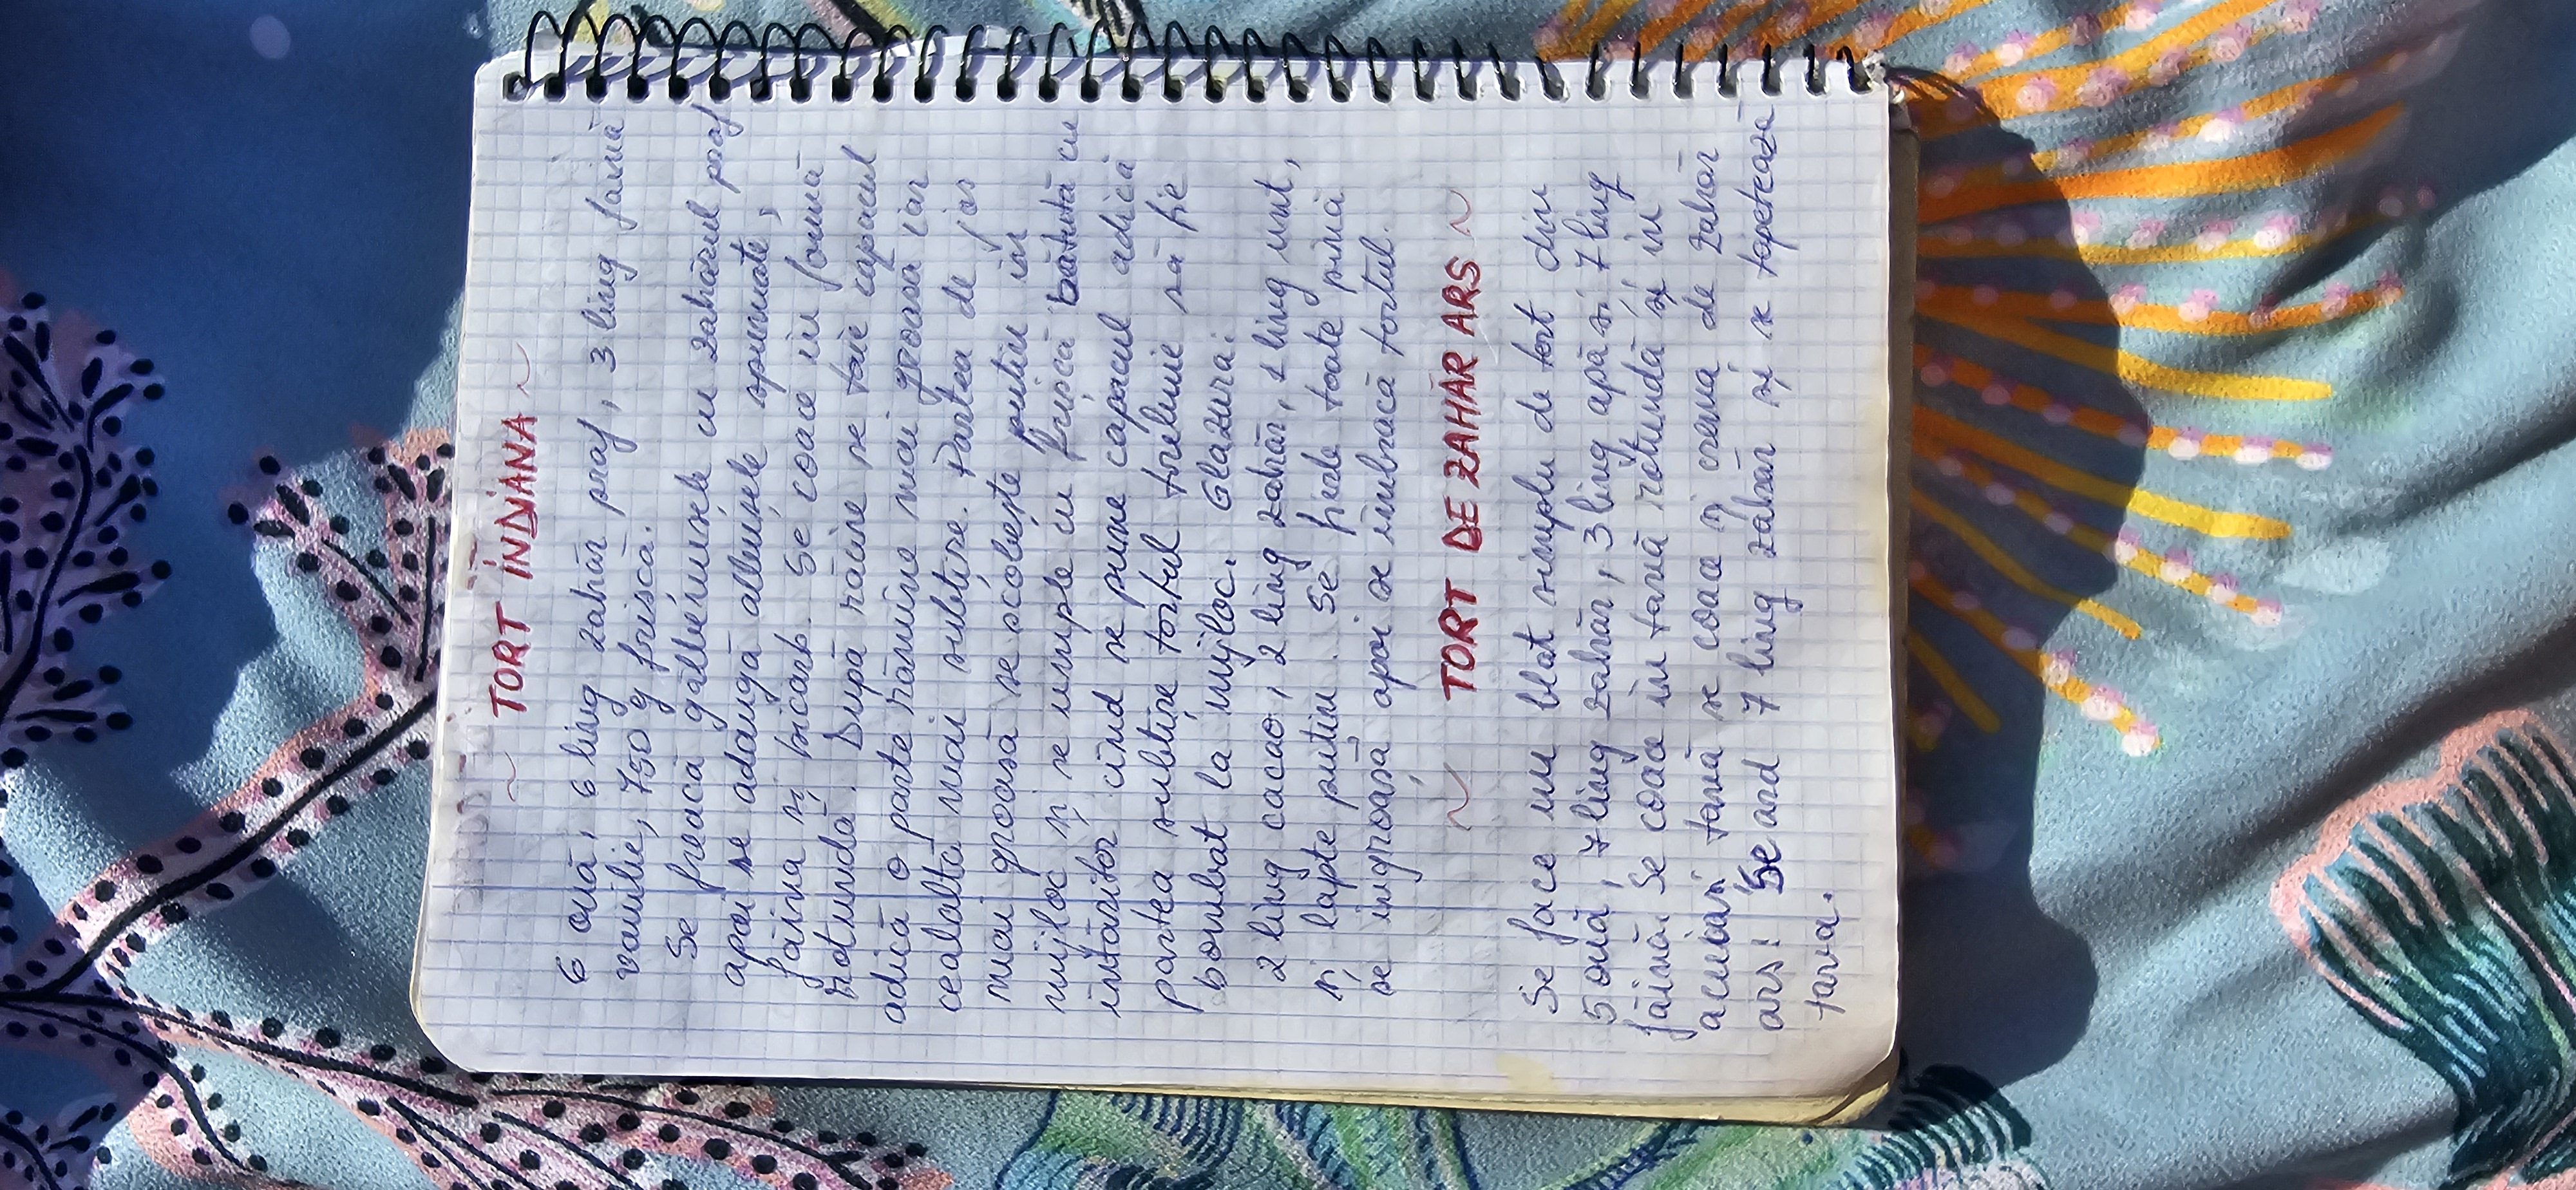 ~ TORT INDIANA ~
6 ouă, 6 ling zahăr praf, 3 ling faină
vanilie, 750 g frișcă.
Se freacă gălbenușele cu zahărul praf
apoi se adaugă albușele spumate,
făina și bicarb. Se coace în formă
rotundă. După răcire se taie capacul
adică o parte rămîne mai groasă iar
cealaltă mai subțire. Partea de jos
mai groasă se scobește puțin în
mijloc și se umple cu frișcă bătută cu
întăritor cînd se pune capacul adică
partea subțire tortul trebuie să fie
bombat la mijloc. Glazura:
2 ling cacao, 2 ling zahăr, 1 ling unt,
și lapte puțin. Se fierb toate pînă
se îngroașă apoi se îmbracă tortul.
~ TORT DE ZAHĂR ARS ~
Se face un blat simplu de tort din
5 ouă, 7 ling zahăr, 3 ling apă și 7 ling
făină. Se coace în tavă rotundă și în
aceiași tavă se coace și crema de zahăr
ars! Se ard 7 ling zahăr și se tapetează
tava.